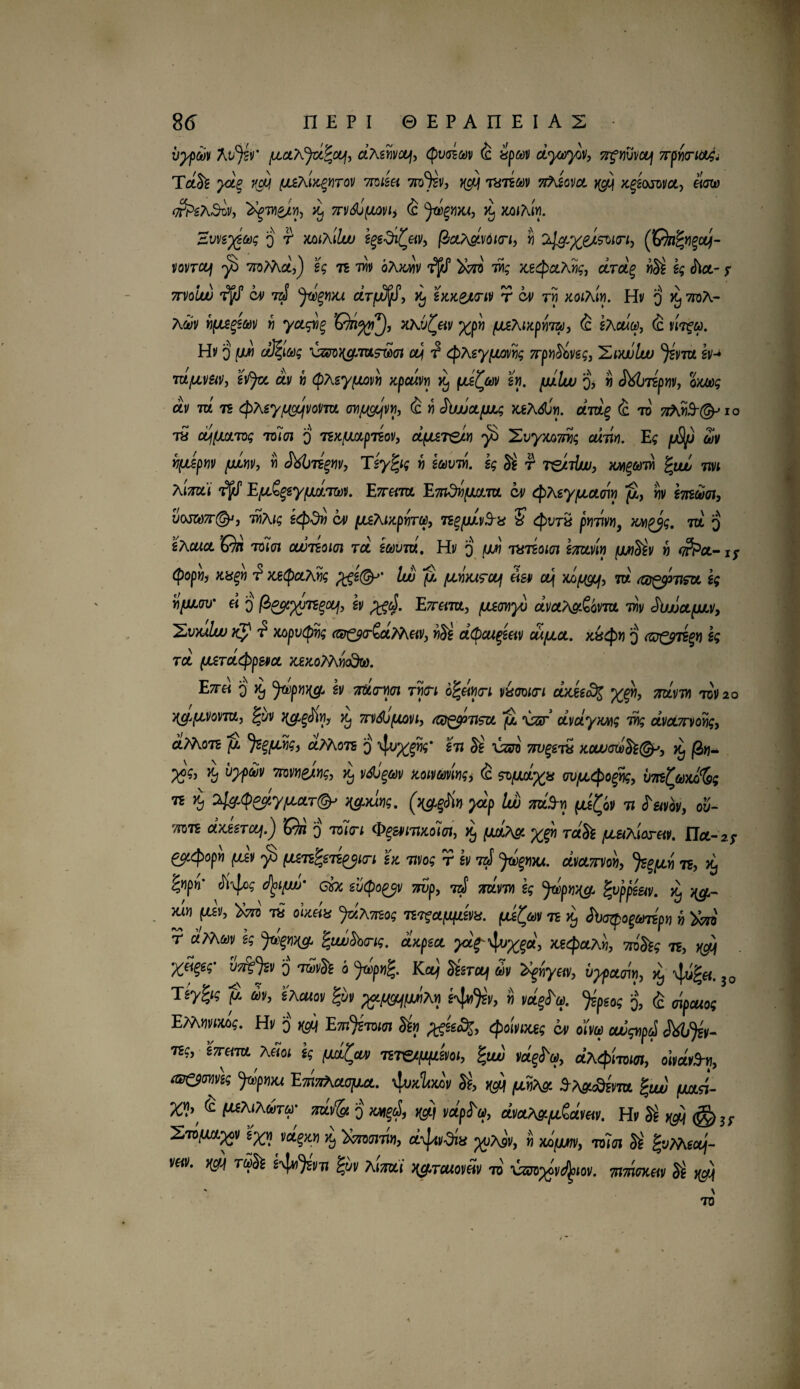 86 ΠΕΡΙ ΘΕΡΑΠΕΙΑΣ
ὑγρῶν λυθέν· μαλθάξαι, ἀλεῆναι, φυσέων καὶ οὔρων ἀγωγὸν, πρηῧναι πρήσιας.
Τάδε γὰρ καὶ μελίκρητον ποιέει ποθέν, καὶ τουτέων πλέονα καὶ κρέσσονα, εἴσω
παρελθὸν, ἀρτηρίῃ, καὶ πνεύμονι, καὶ θώρηκι, καὶ κοιλίῃ.
Ξυνεχέως δὲ τὴν κοιλίην ἐρεθίζειν, βαλάνοισι, ἢ διαχρίστοισι, (ἐπιξηραί-
νονται γὰρ πολλὰ,) ἔς τε τὴν ὁλκὴν τῶν ἀπὸ τῆς κεφαλῆς, ἀτὰρ ἠδὲ ἐς δια- 5
πνοὴν τῶν ἐν τῷ θώρηκι ἀτμῶν, καὶ ἔκκρισιν τῶν ἐν τῇ κοιλίῃ. Ἢν δὲ καὶ πολ-
λῶν ἡμερέων ἡ γαστὴρ ἐπίσχηται, κλύζειν χρὴ μελικρήτῳ, καὶ ἐλαίῳ, καὶ νίτρῳ.
Ἢν δὲ μὴ ἀξίως ὑποκαταστῶσι αἱ τῆς φλεγμονῆς πρηδόνες, Σικύην θέντα ἐν-
τάμνειν, ἔνθα ἂν ἡ φλεγμονὴ κραίνῃ καὶ μέζων ἔῃ. μίην δὲ, ἢ δευτέρην, ὅκως
ἂν τά τε φλεγμαίνοντα σημαίνῃ, καὶ ἡ δύναμις κελεύῃ. ἀτὰρ καὶ τὸ πλῆθος 10
τοῦ αἵματος τοῖσι δὲ τεκμαρτέον, ἀμετρίη γὰρ Ξυγκοπῆς αἰτίη. Ἐς μὲν ὦν
ἡμέρην μίην, ἢ δευτέρην, Τέγξις ἡ ἑωυτή. ἐς δὲ τὴν τρίτην, κηρωτὴ ξύν τινι
λίπαϊ τῶν Ἐμβρεγμάτων. Ἔπειτα Ἐπιθήματα ἐν φλεγμασίῃ μὲν, ἢν ἐπέωσι,
ὕσσωπος, τῆλις ἑφθὴ ἐν μελικρήτῳ, τερμίνθου τοῦ φυτοῦ ῥητίνη, κηρός. τὰ δὲ
ἔλαια ἐπὶ τοῖσι αὐτέοισι τὰ ἑωυτά. Ἢν δὲ μὴ τουτέοισι ἐπανίῃ μηδὲν ἡ παρα- 15
φορὴ, κουρὴ τῆς κεφαλῆς χρέος· ἢν μὲν μήκισται εἶεν αἱ κόμαι, τὰ πρώτιστα ἐς
ἥμισυ· εἰ δὲ βραχύτεραι, ἐν χρῷ. Ἔπειτα, μεσηγὺ ἀναλαβόντα τὴν δύναμιν,
Σικύην κατὰ τῆς κορυφῆς προσβάλλειν, ἠδὲ ἀφαιρέειν αἷμα. κούφη δὲ προτέρη ἐς
τὰ μετάφρενα κεκολλήσθω.
Ἐπεὶ δὲ καὶ θώρηκα ἐν πάσῃσι τῇσι ὀξείῃσι νούσοισι ἀκέεσθαι χρὴ, πάντη τὸν 20
κάμνοντα, ξὺν καρδίῃ, καὶ πνεύμονι, πρώτιστα μὲν ὑπ' ἀνάγκης τῆς ἀναπνοῆς,
ἄλλοτε μὲν θερμῆς, ἄλλοτε δὲ ψυχρῆς· ἔτι δὲ ὑπὸ πυρετοῦ καυσώδεος, καὶ βη-
χὸς, καὶ ὑγρῶν πονηρίης, καὶ νεύρων κοινωνίης, καὶ στομάχου συμφορῆς, ὑπεζωκότος
τε καὶ διαφράγματος κακίης. (καρδίη γὰρ ἢν πάθῃ μέζόν τι δεινὸν, οὔ-
ποτε ἀκέεται.) ἐπὶ δὲ τοῖσι Φρενιτικοῖσι, καὶ μάλα χρὴ τάδε μειλίσσειν. Πα- 25
ραφορὴ μὲν γὰρ μετεξετέροισι ἔκ τινος τῶν ἐν τῷ θώρηκι. ἀναπνοὴ, θερμή τε, καὶ
ξηρή· δίψος δριμύ· οὐκ εὔφορον πῦρ, τῷ πάντη ἐς θώρηκα ξυῤῥέειν. καὶ κα-
κίη μὲν, ἀπὸ τοῦ οἰκείου θάλπεος τετραμμένου. μέζων τε καὶ δυσφορωτέρη ἡ ἀπὸ
τῶν ἄλλων ἐς θώρηκα ξυνδόσις. ἄκρεα γὰρ ψυχρὰ, κεφαλὴ, πόδες τε, καὶ
χεῖρες· ὕπερθεν δὲ τῶνδε ὁ θώρηξ. Καὶ δέεται ὦν ἀρήγειν, ὑγρασίῃ, καὶ ψύξει. 30
Τέγξις μὲν ὦν, ἔλαιον ξὺν χαμαιμήλῃ ἑψηθὲν, ἢ νάρδῳ. θέρεος δὲ, καὶ σίραιος
Ἑλληνικός. Ἢν δὲ καὶ Ἐπιθέτοισι δέῃ χρέεσθαι, φοίνικες ἐν οἴνῳ αὐστηρῷ δευθέν-
τες, ἔπειτα λεῖοι ἐς μάζαν τετριμμένοι, ξὺν νάρδῳ, ἀλφίτοισι, οἰνάνθῃ,
προσηνὲς θώρηκι Ἐπίπλασμα. ψυκτικὸν δὲ, καὶ μῆλα θλασθέντα ξὺν μαστί-
χῃ, καὶ μελιλώτῳ· πάντα δὲ κηρῷ, καὶ νάρδῳ, ἀναλαμβάνειν. Ἢν δὲ καὶ ὁ 35
Στόμαχον ἔχῃ νάρκη καὶ ἀποσιτίη, ἀψινθίου χυλὸν, ἢ κόμην, τοῖσι δὲ ξυλλεαί-
νειν. καὶ τῷδε ἑψηθέντι ξὺν λίπαϊ καταιονεῖν τὸ ὑποχόνδριον. πιπίσκειν δὲ καὶ
τὸ